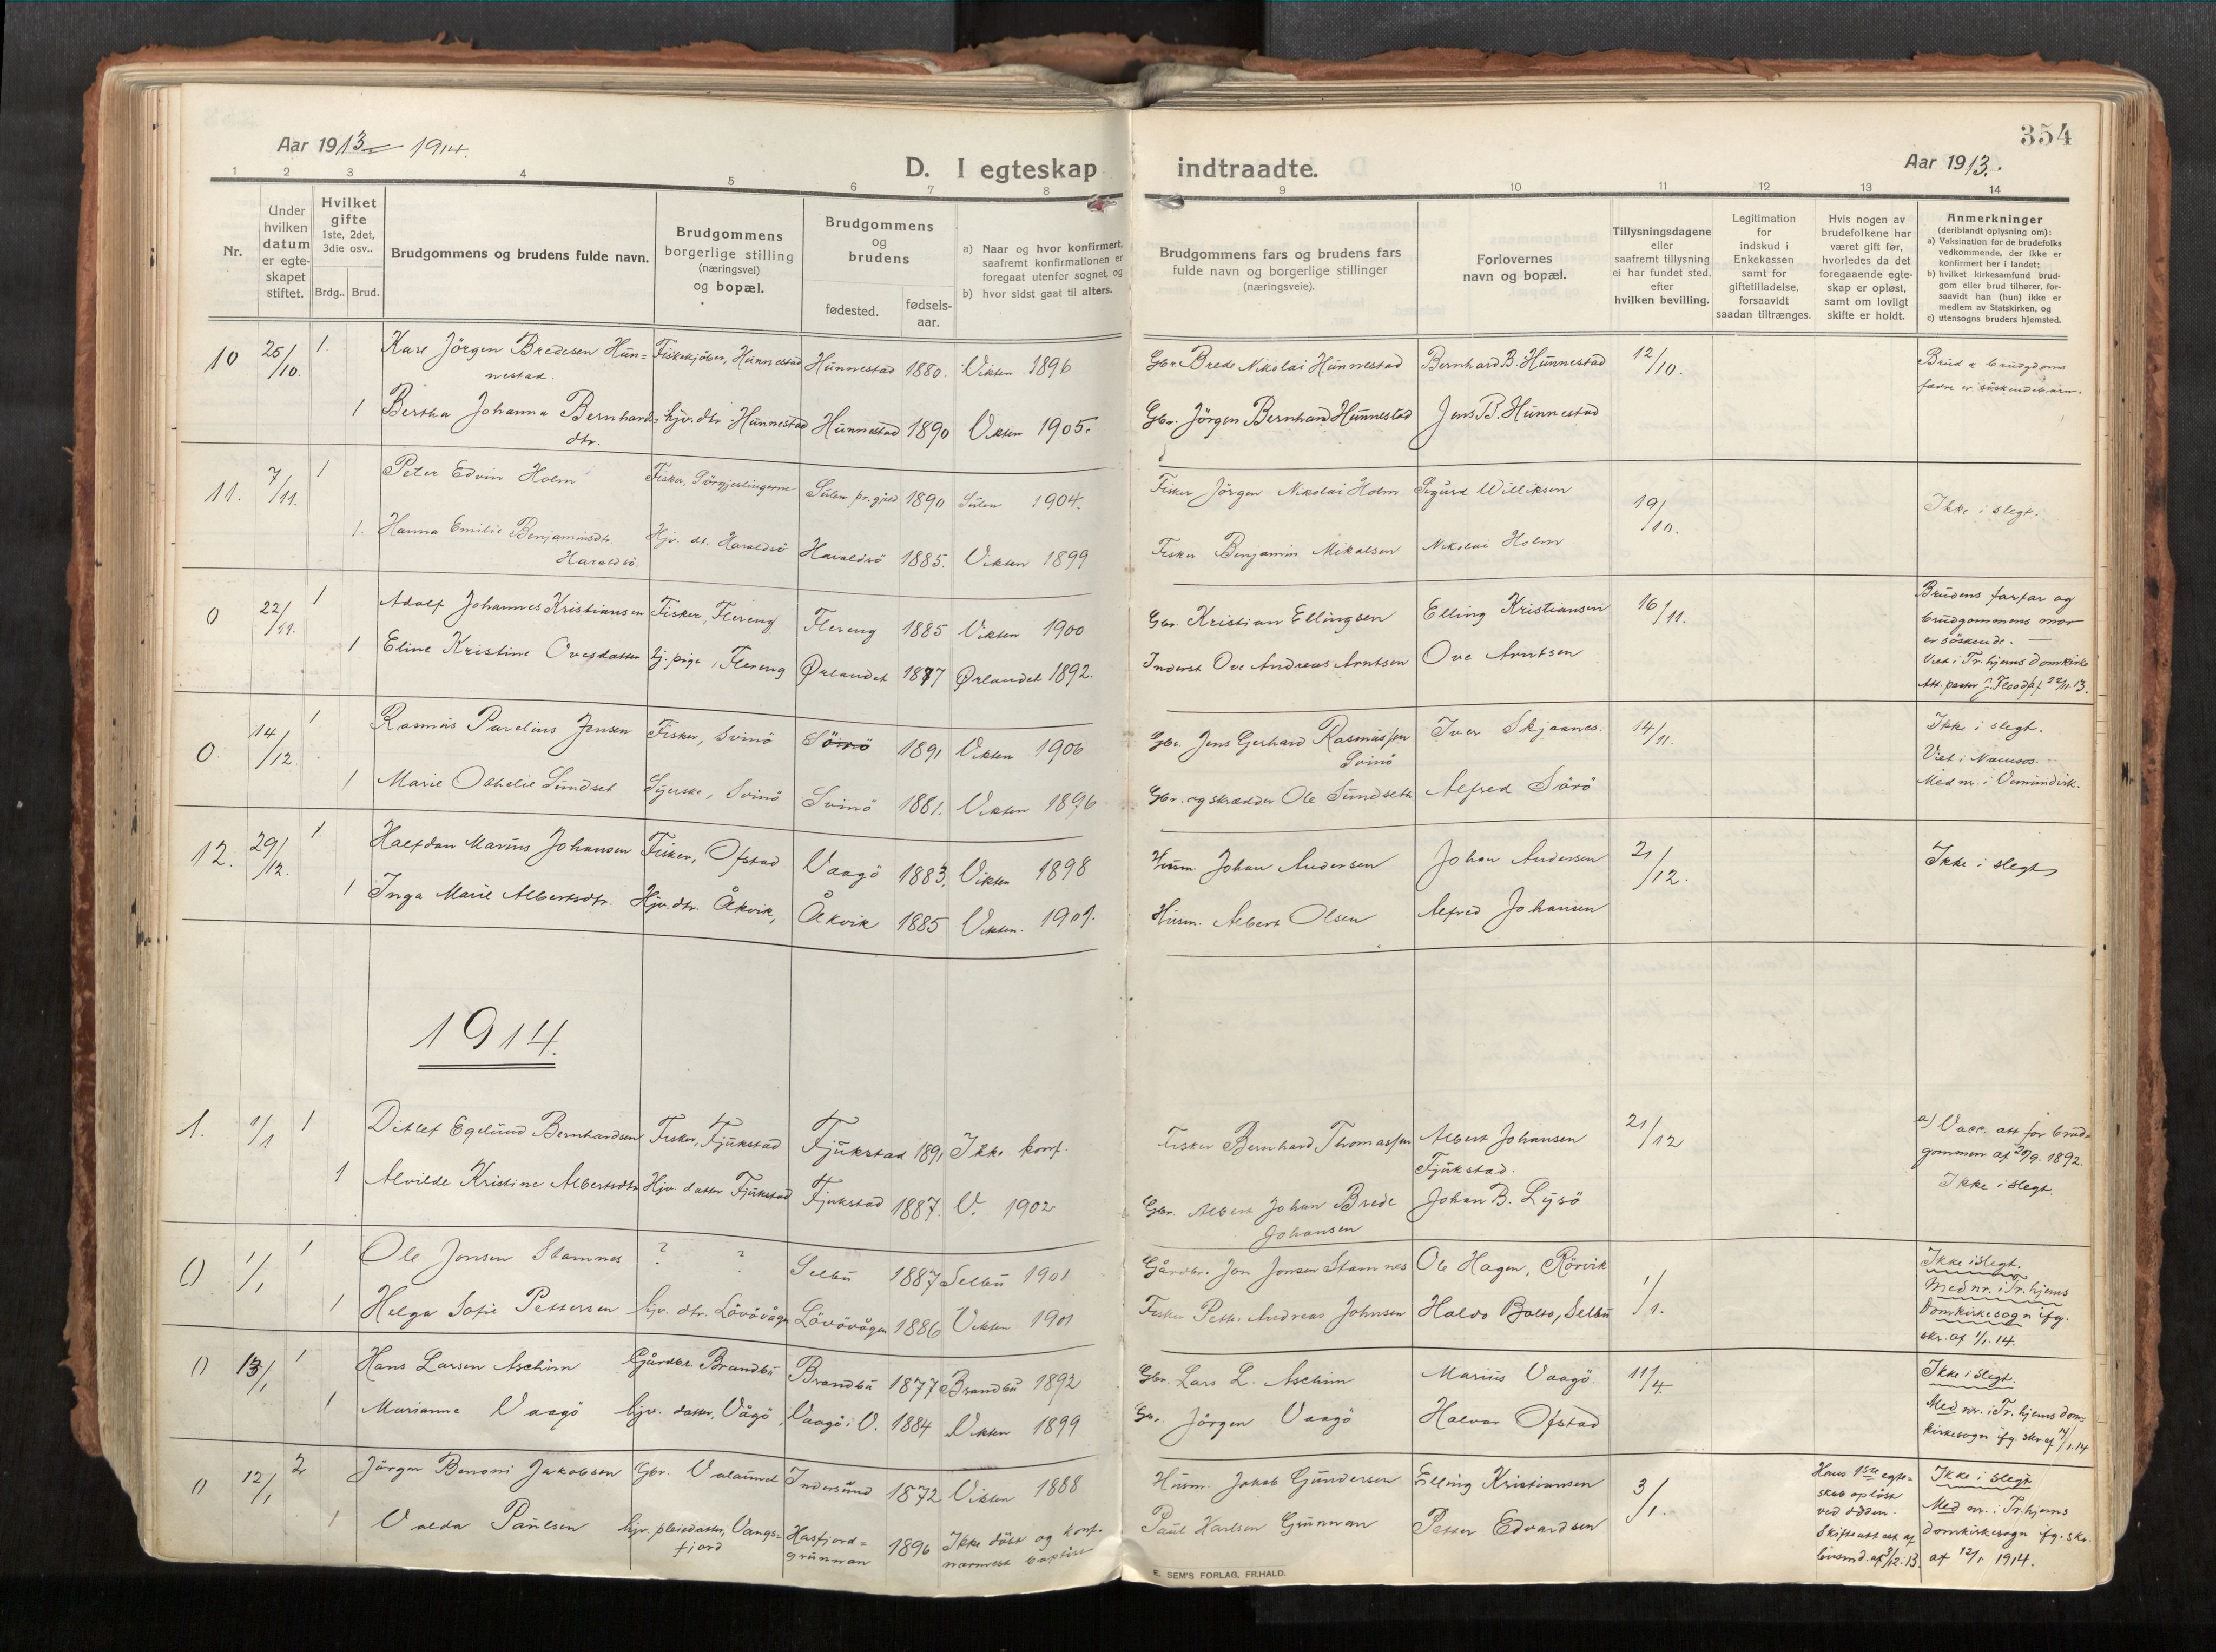 354
Aar 1913 – 1914.
D. I egteskap indtraadte.
Aar 1913.
1 2 3 4 5 6 7 8 9 10 11 12 13 14
Nr.
Under hvilken datum er egte-skapet stiftet.
Hvilket gifte 1ste, 2det, 3die osv..
Brdg.. Brud.
Brudgommens og brudens fulde navn.
Brudgommens borgerlige stilling (næringsvei) og bopæl.
Brudgommens og brudens
fødested. fødsels-aar.
a) Naar og hvor konfirmert, saafremt konfirmationen er foregaat utenfor sognet, og
b) hvor sidst gaat til alters.
Brudgommens fars og brudens fars fulde navn og borgerlige stillinger (næringsveie).
Forlovernes navn og bopæl.
Tillysningsdagene eller saafremt tillysning ei har fundet sted. efter hvilken bevilling.
Legitimation for indskud i Enkekassen samt for giftetilladelse, forsaavidt saadan tiltrænges.
Hvis nogen av brudefolkene har været gift før, hvorledes da det foregaaende egte-skap er opløst, samt om lovligt skifte er holdt.
Anmerkninger (deriblandt oplysning om):
a) Vaksination for de brudefolks vedkommende, der ikke er konfirmert her i landet;
b) hvilket kirkesamfund brud-gom eller brud tilhører, for-saavidt han (hun) ikke er medlem av Statskirken, og
c) utensogns bruders hjemsted.
10 25/10. 1. Karl Jörgen Bredesen Hun=nestad. Fiskekjöber, Hunnestad Hunnestad 1880. Vikten 1896 Gbr. Brede Nikolai Hunnestad Bernhard B. Hunnestad 12/10. Brud & brudgoms fædre er söskendebarn.
1 Bertha Johanna Bernhards-dtr. hjv. dtr. Hunnestad Hunnestad 1890 Vikten 1905. Gbr. Jörgen Bernhard Hunnestad Jens B. Hunnestad
11. 7/11. 1 Peter Edvin Holm Fisker, Sörgjeslingerne Sülen pr.gjeld 1890 Sülen 1904. Fisker Jörgen Nikolai Holm Sigurd Williksen 19/10. Ikke i slegt.
1. Hanna Emilie Benjaminsdtr. Haraldsö. Hjv. dt. Haraldsö Haraldsö 1885. Vikten 1899 Fisker Benjamin Mikalsen Nikolai Holm
0 22/11. 1 Adolf Johannes Kristiansen Fisker, Flereng Flereng 1885 Vikten 1900 Gbr. Kristian Ellingsen Elling Kristiansen 16/11. Brudens farfar og brudgommens mor er söskende. — Viet i Tr.hjems domkirke
1 Eline Kristine Ovesdatter tj. pige, Flereng Ørlandet 1877 Ørlandet 1892. Inderst Ove Andreas Arntsen Ove Arntsen
0. 14/12. 1 Rasmus Parelius Jensen Fisker, Svinö 1891 Vikten 1906 Gbr. Jens Gerhard Rasmussen Svinö Iver Skjaanes. 14/11. Ikke i slegt. Viet i Namsos.
1 Marie Othelie Sundset Syerske, Svinö Svinö 1881. Vikten 1896 Gbr. og skrædder Ole Sundseth Alfred Sörö
12. 29/12. 1 Halfdan Marius Johansen Fisker, Ofstad Vaagö 1883. Vikten 1898 Husm. Johan Andersen Johan Andersen 21/12. Ikke i slegt
1 Inga Marie Albertsdtr. Hjv. dtr. Åkvik, Åkvik 1885 Vikten. 1901. Husm. Albert Olsen Alfred Johansen
1914.
1. 1/1 1 Ditlef Egelund Bernhardsen Fisker, Fjukstad Fjukstad 1891 Ikke konf. Fisker Bernhard Thomassen Albert Johansen Fjukstad. 21/12 a) Vacc. att. for brud-gommen af 20/9. 1892. Ikke i slegt.
1 Alvilde Kristine Albertsdtr Hjv datter Fjukstad Fjukstad 1887. V. 1902 Gbr. Albert Johan Brede Johansen Johan B. Lysö
0 1/1 1 Ole Jonsen Stamnes ? ? Selbu 1887 Selbu 1901 Gårdbr. Jon Jonsen Stamnes Ole Hagen, Rörvik 1/1. Ikke i slegt. Med nr. i Tr.hjems Domkirkesogn ifg. skr. af 1/1. 14.
1 Helga Sofie Pettersen hjv. dtr. Lövövågen Lövövågen 1886 Vikten 1901 Fisker Pett. Andreas Johnsen Haldo Balto, Selbu
0 13/1 1 Hans Larsen Aschim Gårdbr. Brandbu Brandbu 1877 Brandbu 1892 Gbr. Lars L. Aschim Marius Vaagö. 11/4. Ikke i slegt. Med nr. i Tr.hjems dom-kirkesogn ifg. skr af 14/1.14
1 Marianne Vaagö hjv. datter, Vågö, Vaagö i V. 1884 Vikten 1899 Gbr. Jörgen Vaagö Halvor Ofstad
0 12/1 2 Jörgen Benoni Jakobsen Gbr. Valaunet Indersund 1872 Vikten 1888 Husm. Jakob Gundersen Elling Kristiansen 3/1. Hans 1ste egte=skab oplöst ved döden. Skifteattest af lensmd. af 9/12. 13. Ikke i slegt Med nr. i Tr.hjems domkirkesogn ifg. skr. af 12/1 1914.
1 Valda Paulsen hjv. pleiedatter, Vangs=fjord Hasfjord=grunnan 1896 Ikke döbt og konf. nærmest baptist Paul Karlsen Grunnan Petter Edvardsen
E. SEM'S FORLAG, FR.HALD.